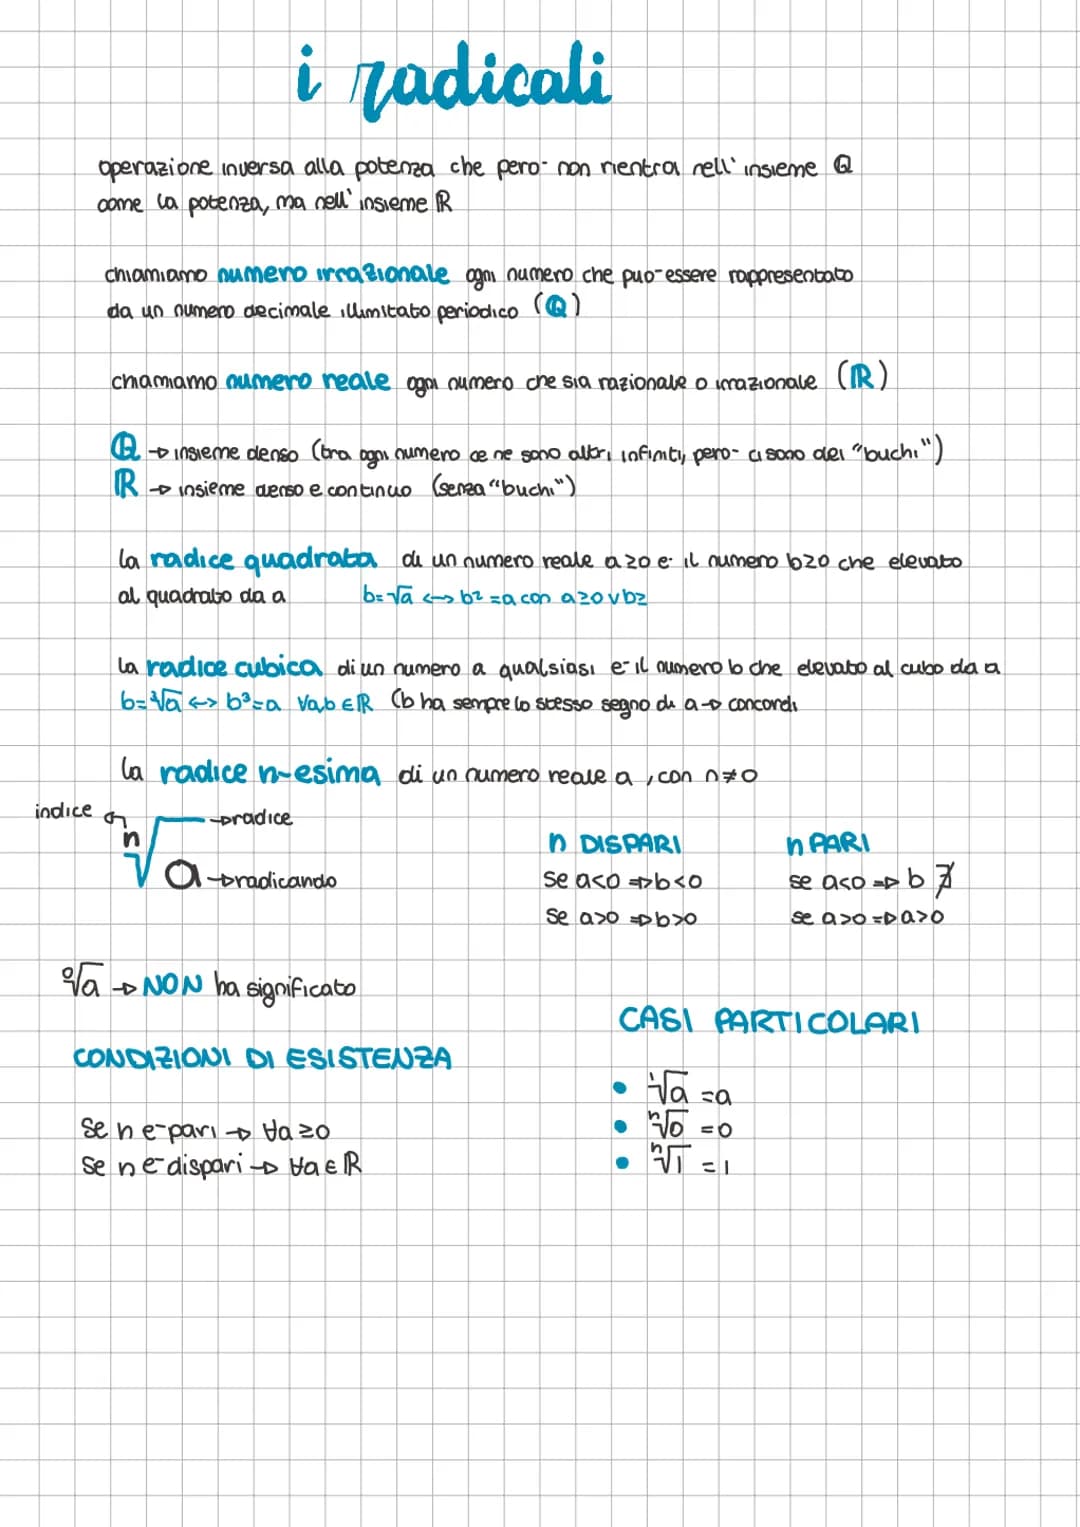 i radicali
operazione inversa alla potenza che pero- non rientra nell' insieme Q
come la potenza, ma nell' insieme ℝ
chiamiamo numero irrazionale ogni numero che puo- essere rappresentato
da un numero decimale illimitato periodico (Q)
chiamiamo numero reale ogni numero che sia razionale o irrazionale (ℝ)
Q → insieme denso (tra ogni numero ce ne sono altri infiniti, pero- ci sono dei "buchi")
ℝ → insieme denso e continuo (senza "buchi")
la radice quadrata di un numero reale a≥0 e- il numero b≥0 che elevato
al quadrato da a b=√a ↔ b²=a con a≥0 v b≥
la radice cubica di un numero a qualsiasi e- il numero b che elevato al cubo da a
b=³√a ↔ b³=a ∀a,b ∈ℝ (b ha sempre lo stesso segno di a → concordi
la radice n-esima di un numero reale a , con n≠0
indice
n √ a
→radice
→radicando
n DISPARI
se a<0 ⇒ b<0
se a>0 ⇒ b>0
n PARI
se a<0 ⇒ b ∄
se a>0 ⇒ a>0
⁰√a → NON ha significato
CONDIZIONI DI ESISTENZA
se n e- pari → ∀a ≥0
se n e- dispari → ∀a ∈ ℝ
CASI PARTICOLARI
• ¹√a =a
• ⁿ√0 =0
• ⁿ√1 =1